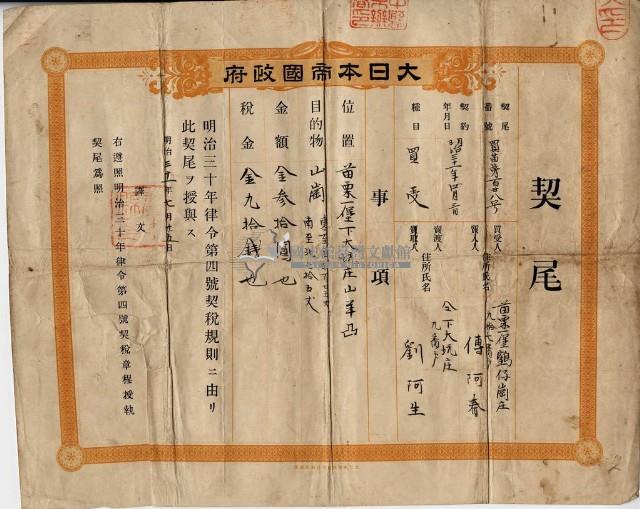 大日本帝國政府
契尾
契尾番號
買苗第一百八號
契約年月日
明治三十一年四月二日
種目
買受
買受人
住所氏名
苗栗一堡鶴仔崗庄
傅阿春
賣渡人
住所氏名
仝下大坑庄
九番戶
劉阿生
事項
位置 苗栗一堡下大坑庄山羊凸
目的物 山崗
金額 金參拾圓也
稅金 金九拾錢也
明治三十年律令第四號契稅規則ニ由リ
此契尾ヲ授與ス
明治三十一年七月廿五日
譯文
右遵照明治三十年律令第四號契稅章程授執
契尾爲照